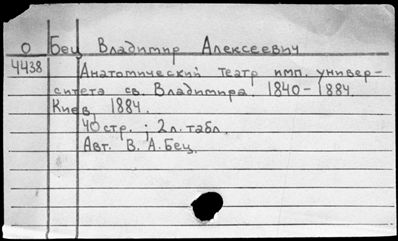 О Бец Владимир Алексеевич
4438 Анатомический театр имп. универ-
ситета св. Владимира. 1840-1884.
Киев, 1884.
40 стр.; 2 л. табл.
Авт. В. А. Бец.